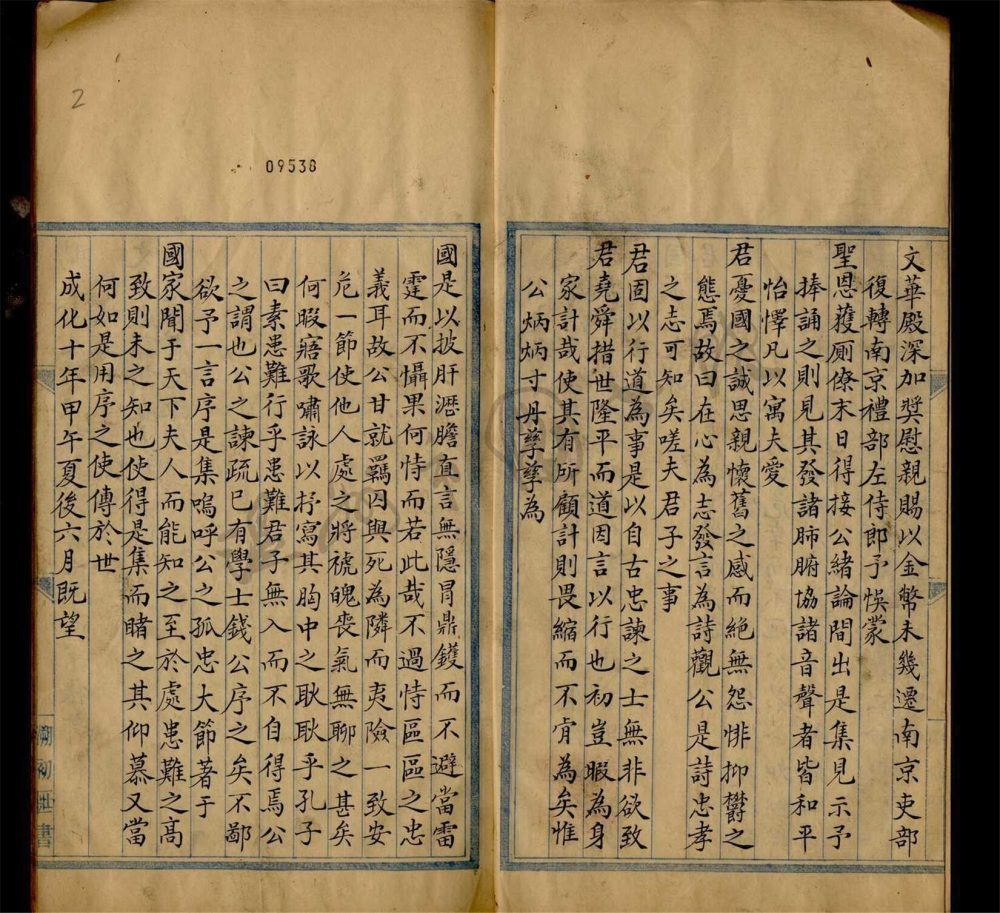 文華殿深加奬慰親賜以金幣未幾遷南京吏部
復轉南京禮部左侍郎予悞蒙
聖恩獲厠僚末日得接公緒論間出是集見示予
捧誦之則見其發諸肺腑協諸音聲者皆和平
怡懌凡以寓夫愛
君憂國之誠思親懷舊之感而絶無怨悱抑欝之
態焉故曰在心為志發言為詩觀公是詩忠孝
之志可知矣嗟夫君子之事
君固以行道為事是以自古忠諫之士無非欲致
君堯舜措世隆平而道因言以行也初豈暇為身
家計哉使其有所顧計則畏縮而不肯為矣惟
公炳炳寸丹孳孳為
國是以披肝瀝膽直言無隱冐鼎鑊而不避當雷
霆而不懾果何恃而若此哉不過恃區區之忠
義耳故公甘就羈囚與死為隣而夷險一致安
危一節使他人處之將禠魄喪氣無聊之甚矣
何暇寤歌嘯詠以抒寫其胸中之耿耿乎孔子
曰素患難行乎患難君子無入而不自得焉公
之謂也公之諫疏已有學士錢公序之矣不鄙
欲予一言序是集嗚呼公之孤忠大節著于
國家聞于天下夫人而能知之至於處患難之髙
致則未之知也使得是集而睹之其仰慕又當
何如是用序之使傳於世
成化十年甲午夏後六月既望
2
09538